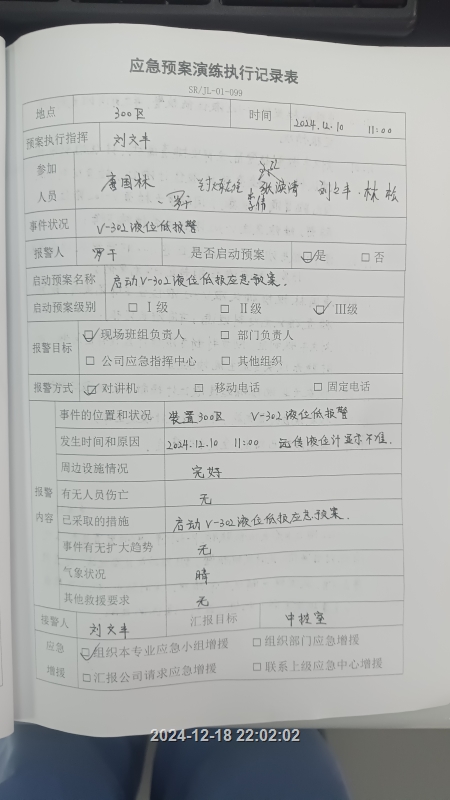 应急预案演练执行记录表
SR/JL-01-099
地点 300区 时间 2024.12.10 11:00
预案执行指挥 刘文丰
参加人员 唐国林 张滨涛 刘文丰 林松
罗干 李倩
事件状况 V-302液位低报警
报警人 罗干 是否启动预案 ☑是 □否
启动预案名称 启动V-302液位低报应急预案.
启动预案级别 □Ⅰ级 □Ⅱ级 ☑Ⅲ级
报警目标 ☑现场班组负责人 □部门负责人
□公司应急指挥中心 □其他组织
报警方式 ☑对讲机 □移动电话 □固定电话
报警内容 事件的位置和状况 装置300区 V-302液位低报警
发生时间和原因 2024.12.10 11:00 远传液位计显示不准.
周边设施情况 完好
有无人员伤亡 无
已采取的措施 启动V-302液位低报应急预案.
事件有无扩大趋势 无
气象状况 晴
其他救援要求 无
接警人 刘文丰 汇报目标 中控室
应急增援 ☑组织本专业应急小组增援 □组织部门应急增援
□汇报公司请求应急增援 □联系上级应急中心增援
2024-12-18 22:02:02